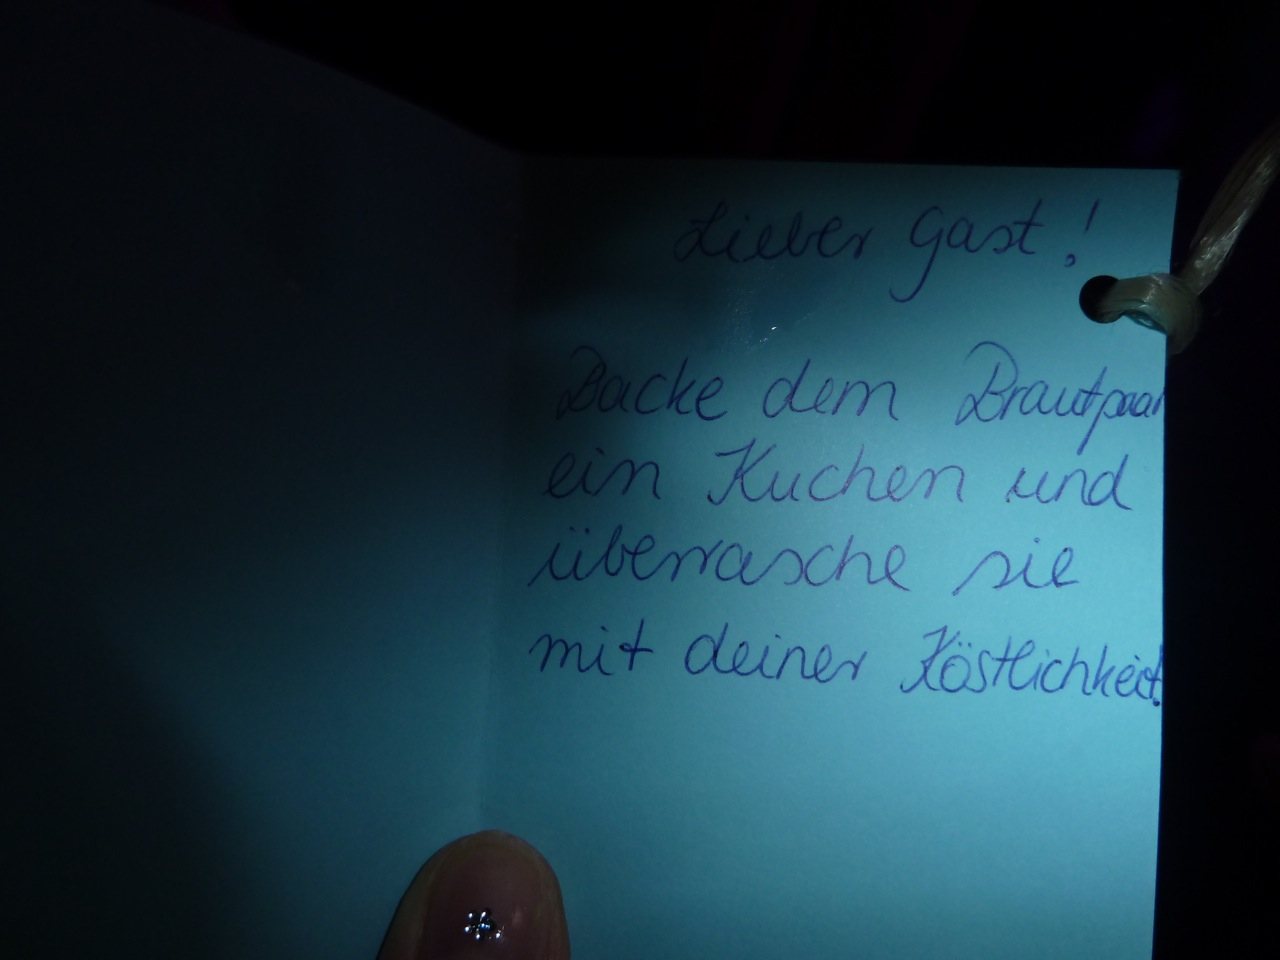 Lieber Gast!
Backe dem Brautpaar
ein Kuchen und
überrasche sie
mit deiner Köstlichkeit.